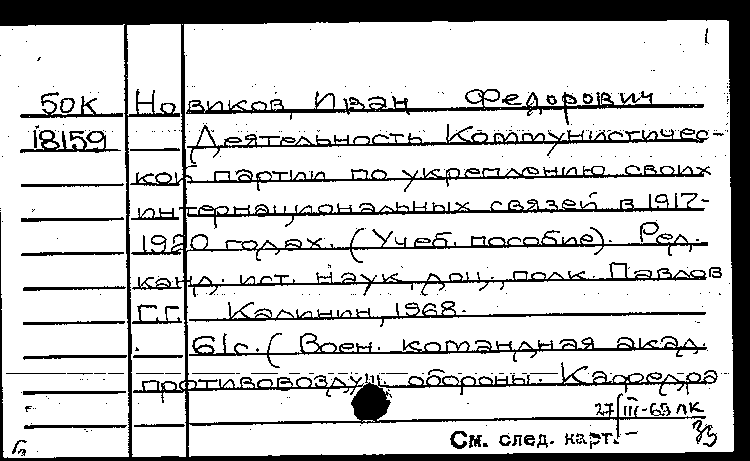 1
БОК Новиков, Иван Федорович
18159 Деятельность Коммунистичес-
кой партии по укреплению своих
интернациональных связей в 1917-
1920 годах. (Учеб. пособие). Ред.
канд. ист. наук, доц., полк. Павлов
Г.Г. Калинин, 1968.
61с. (Воен. командная акад.
противовоздуш. обороны. Кафедра
27/III-69 ЛК
См. след. карт.